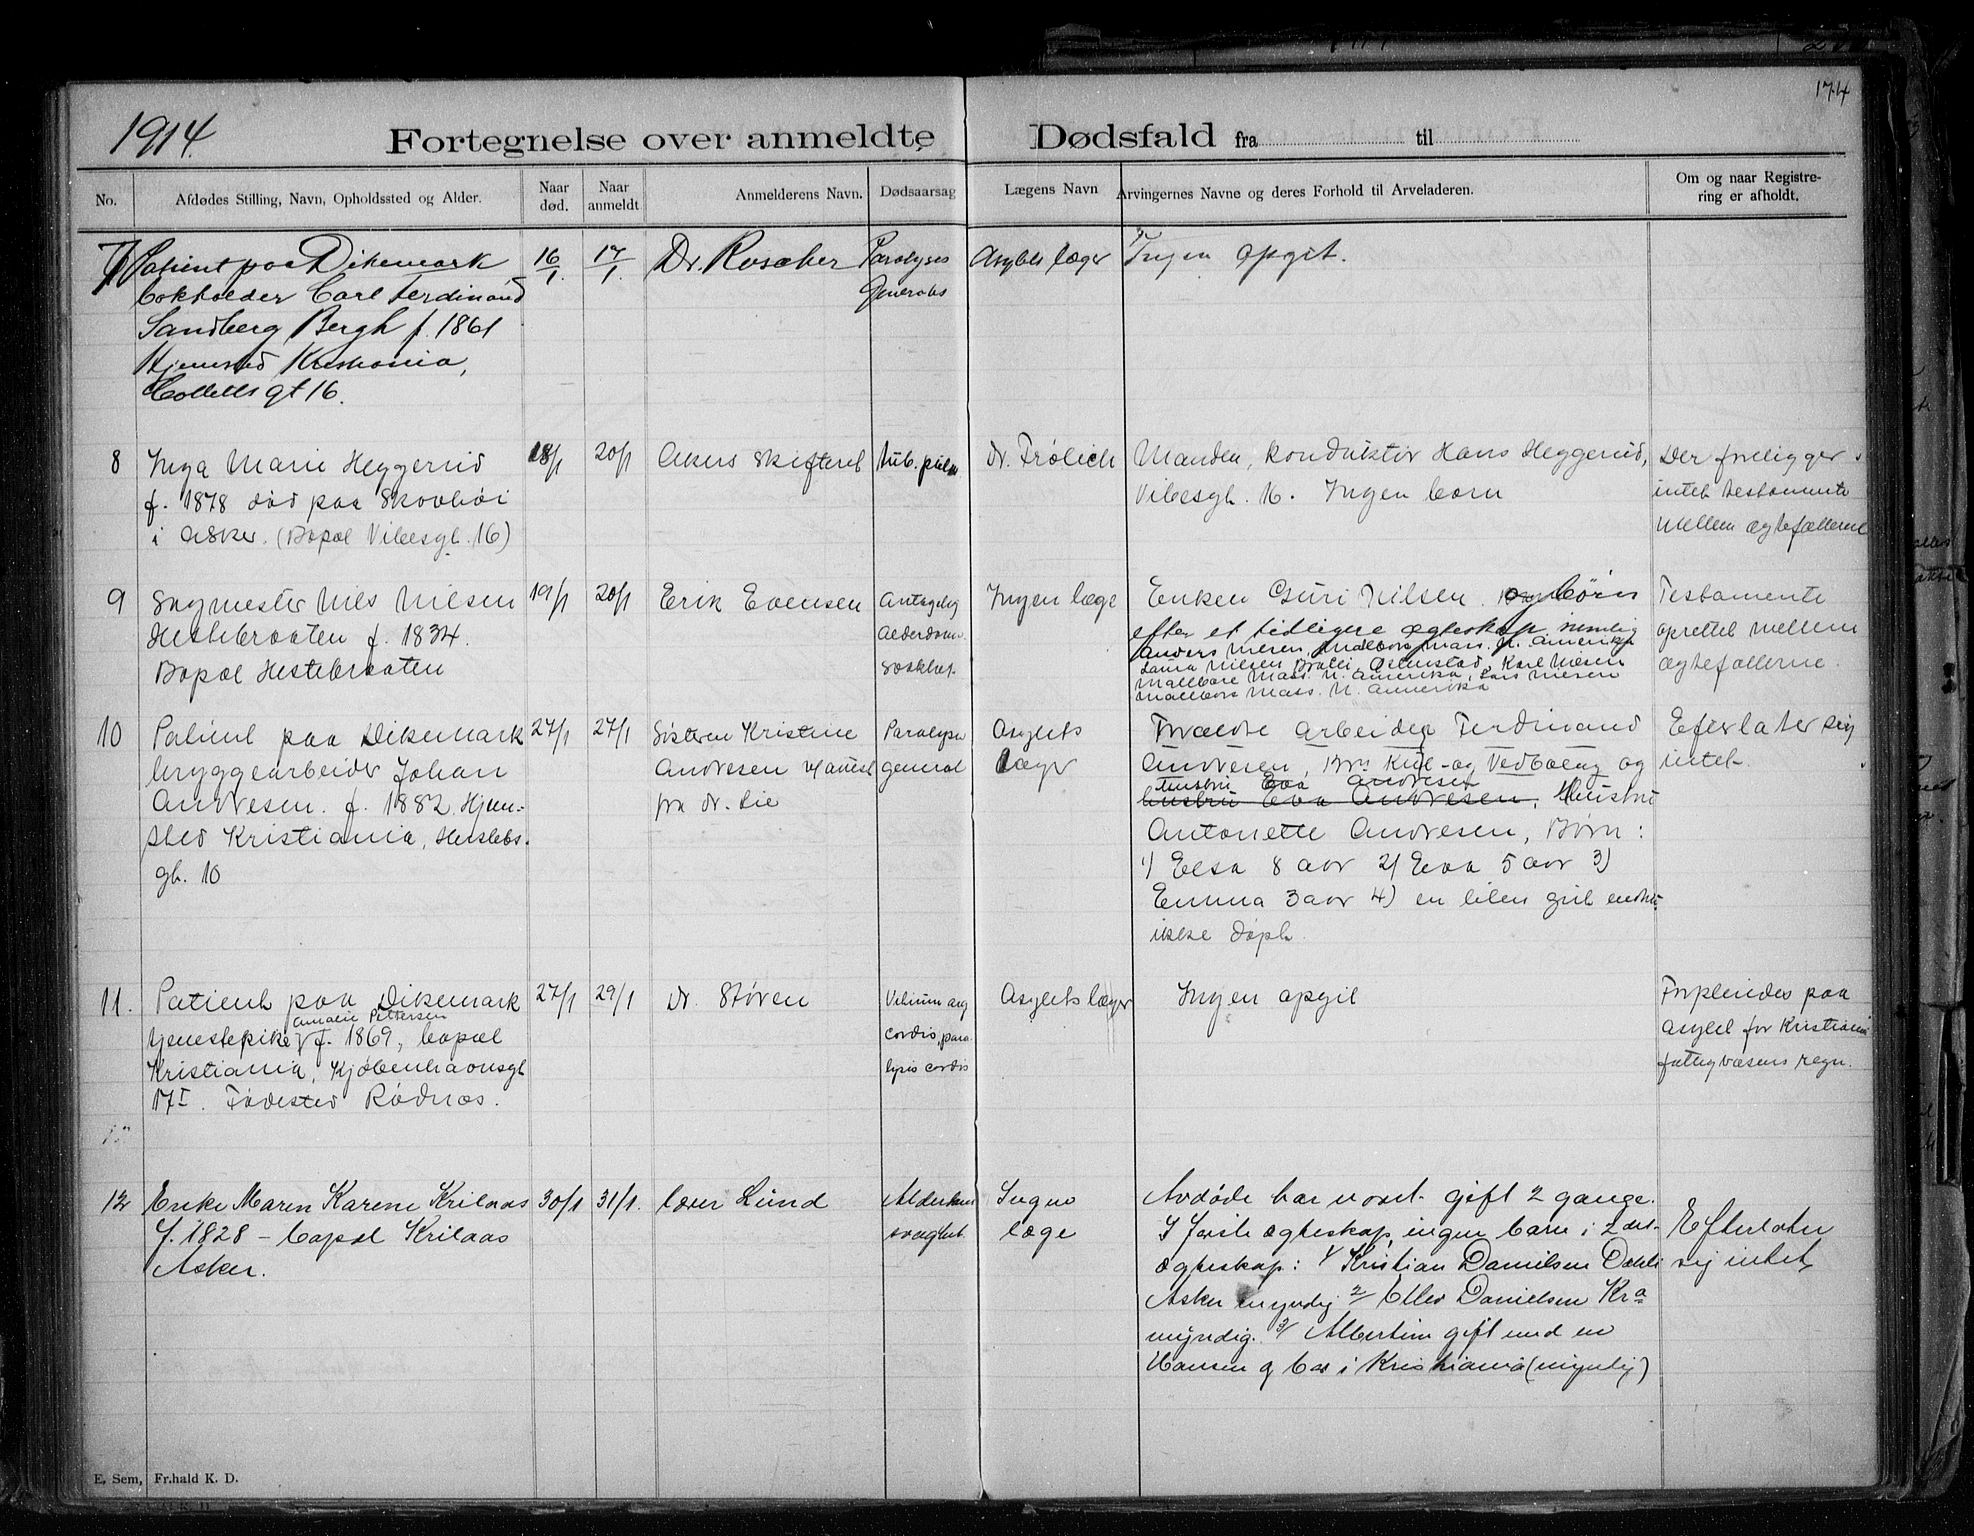 174
1914.
Fortegnelse over anmeldte Dødsfald fra til
No.
Afdødes Stilling, Navn, Opholdssted og Alder.
Naar død.
Naar anmeldt
Anmelderens Navn.
Dødsaarsag
Lægens Navn
Arvingernes Navne og deres Forhold til Arveladeren.
Om og naar Registre-
ring er afholdt.
7
Patient paa Dikemark
bokholder Carl Ferdinand
Sandberg Bergh f. 1861
Hjemsted Kristiania,
Colletts gt 16.
16/1.
17/1.
Dr.
Paralyses
Generales
Asylets læger
Ingen opgit.
8
Inga Marie Heggerud
f. 1878 død paa Skovhøi
i Asker. (Bopæl Vibesgt. 16)
18/1
20/1
Akers Skifteret
tub. pulm
Dr. Frølich
Manden, konduktør Hans Heggerud,
Vibesgt. 16. Ingen barn
Der foreligger
intet testamente
mellem ægtefællerne
9
Skymester Nils Nilsen
Hestebraaten f. 1834.
Bopæl Hestebraaten
19/1
20/1
Erik Evensen
Antagelig
Alderdoms-
svakhet.
Ingen læge
Enken Guri Nilsen. og børn
efter et tidligere ægteskap nemlig
Anders Nilsen, Malboro Mass. N. Amerika
Laura Nilsen Østenstad, Karl Nilsen
Mallboro Mass. N. Amerika, Lars Nilsen
Mallboro Mass. N. Amerika
Testamente
oprettet mellem
ægtefællerne.
10
Patient paa Dikemark
bryggearbeider Johan
Andresen. f. 1882. Hjem-
sted Kristiania, Herslebs-
gt. 10
27/1
27/1
Søsteren Kristine
Andresen
fra dr. Lie
Paralyse
general
Asylets
læger
Forældre arbeider Ferdinand
Andresen, Kul- og Vedbolag og
hustru Eva Andresen
hustru Eva Andresen, Hustru
Antonette Andresen, Børn:
1) Elsa 8 aar 2) Eva 5 aar 3)
Emma 3 aar 4) en liten gut endnu
ikke døpt.
Efterlater sig
intet.
11.
Patient paa Dikemark
Amalie Pettersen
tjenestepike f. 1869, bopæl
Kristiania, Kjøbenhavnsgt
17 I. Fødested Rødnæs.
27/1
29/1
Dr. Støren
Vitium org
cordis, para-
lysis cordis
Asylets læger
Ingen opgit
Forpleiedes paa
asylet for Kristiania
fattigvæsens regn.
12
Enke Maren Karene Krilaas
f. 1828 - bopæl Krilaas
Asker.
30/1
31/1.
lærer Lund
Alderdoms
svaghet.
Ingen
læge
Avdøde har været gift 2 gange.
I første ægteskap, ingen barn i 2 det-
ægteskap: 1/ Kristian Danielsen Dæhli
Asker myndig 2/ Ellev Danielsen Kra
myndig. 3/ Albertine gift med en
Hansen og bor i Kristiania (myndig)
Efterlater
sig intet,
E. Sem, Fr.hald K. D.